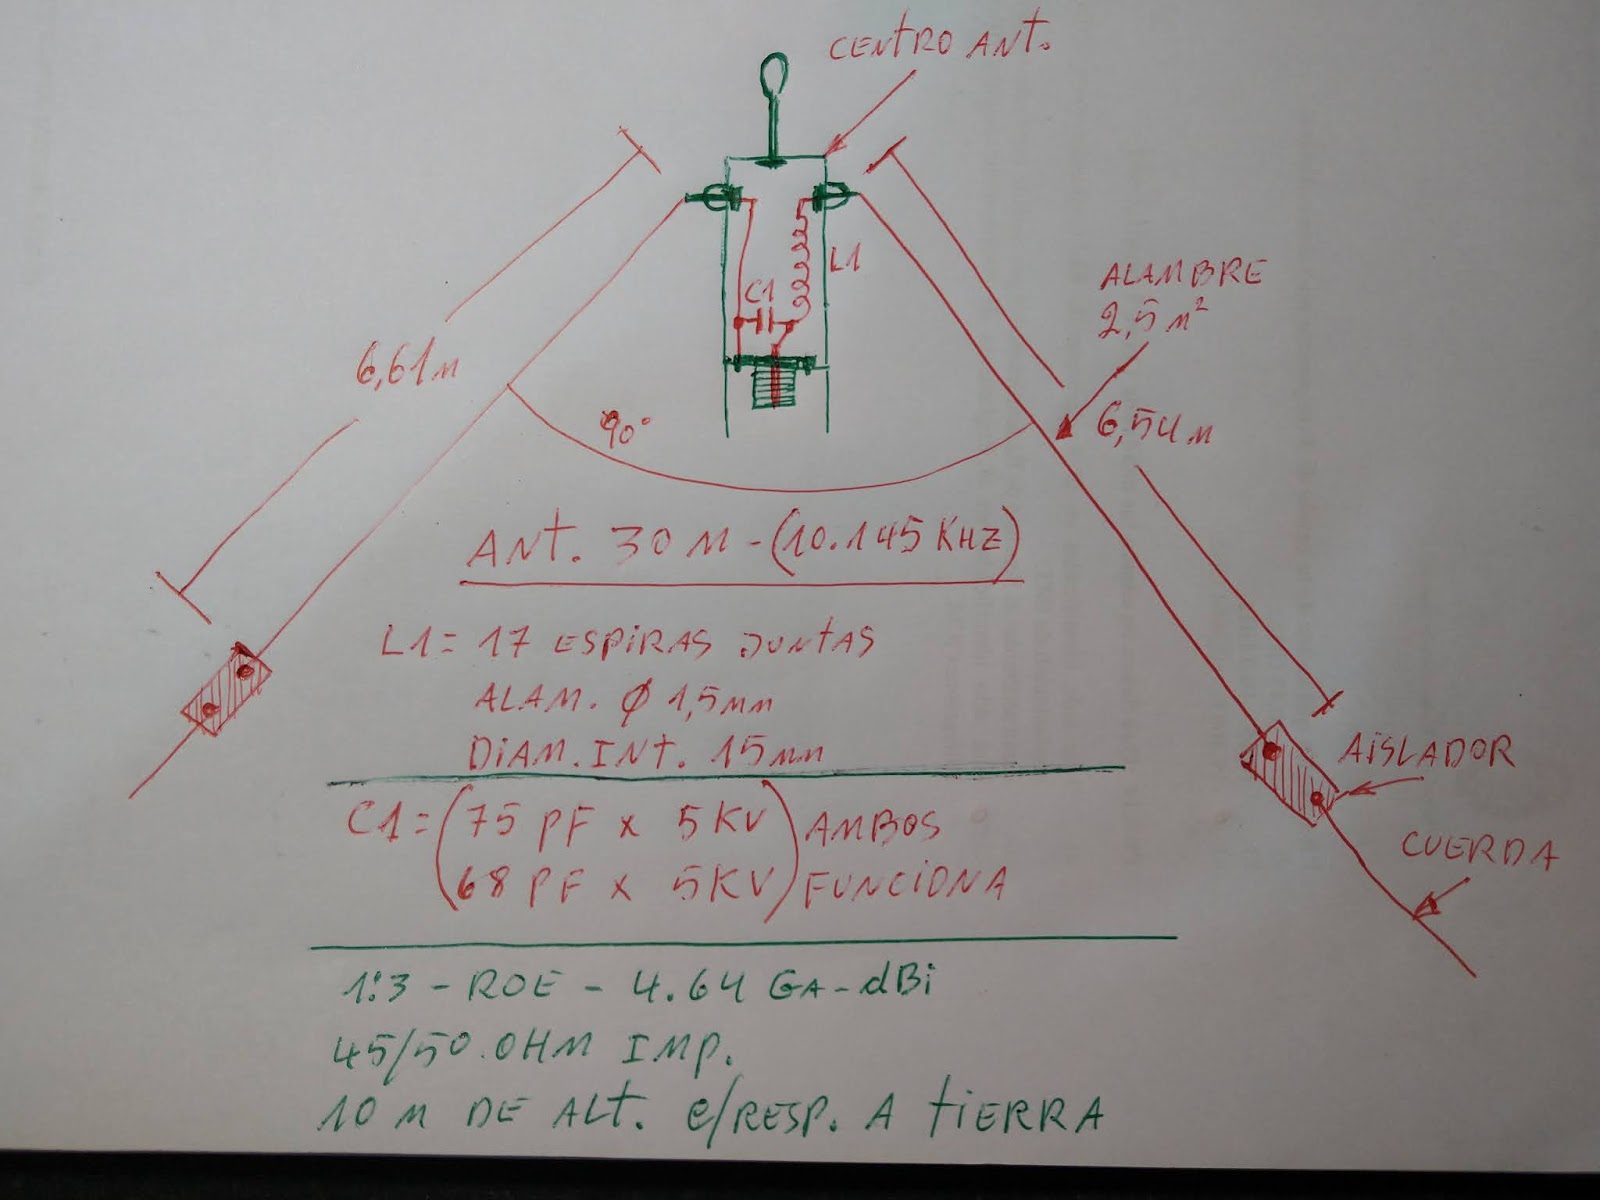 CENTRO ANT.
L1
C1
ALAMBRE
2,5 m²
6,61 M
6,54 M
90°
ANT. 30 M - (10.145 KHZ)
L1 = 17 ESPIRAS JUNTAS
ALAM. Ø 1,5 mm
DIAM. INT. 15 mm
AISLADOR
C1 = (75 PF x 5 KV) AMBOS
(68 PF x 5 KV) FUNCIONA
CUERDA
1:3 - ROE - 4.64 GA - dBi
45/50.OHM IMP.
10 M DE ALT. C/RESP. A TIERRA